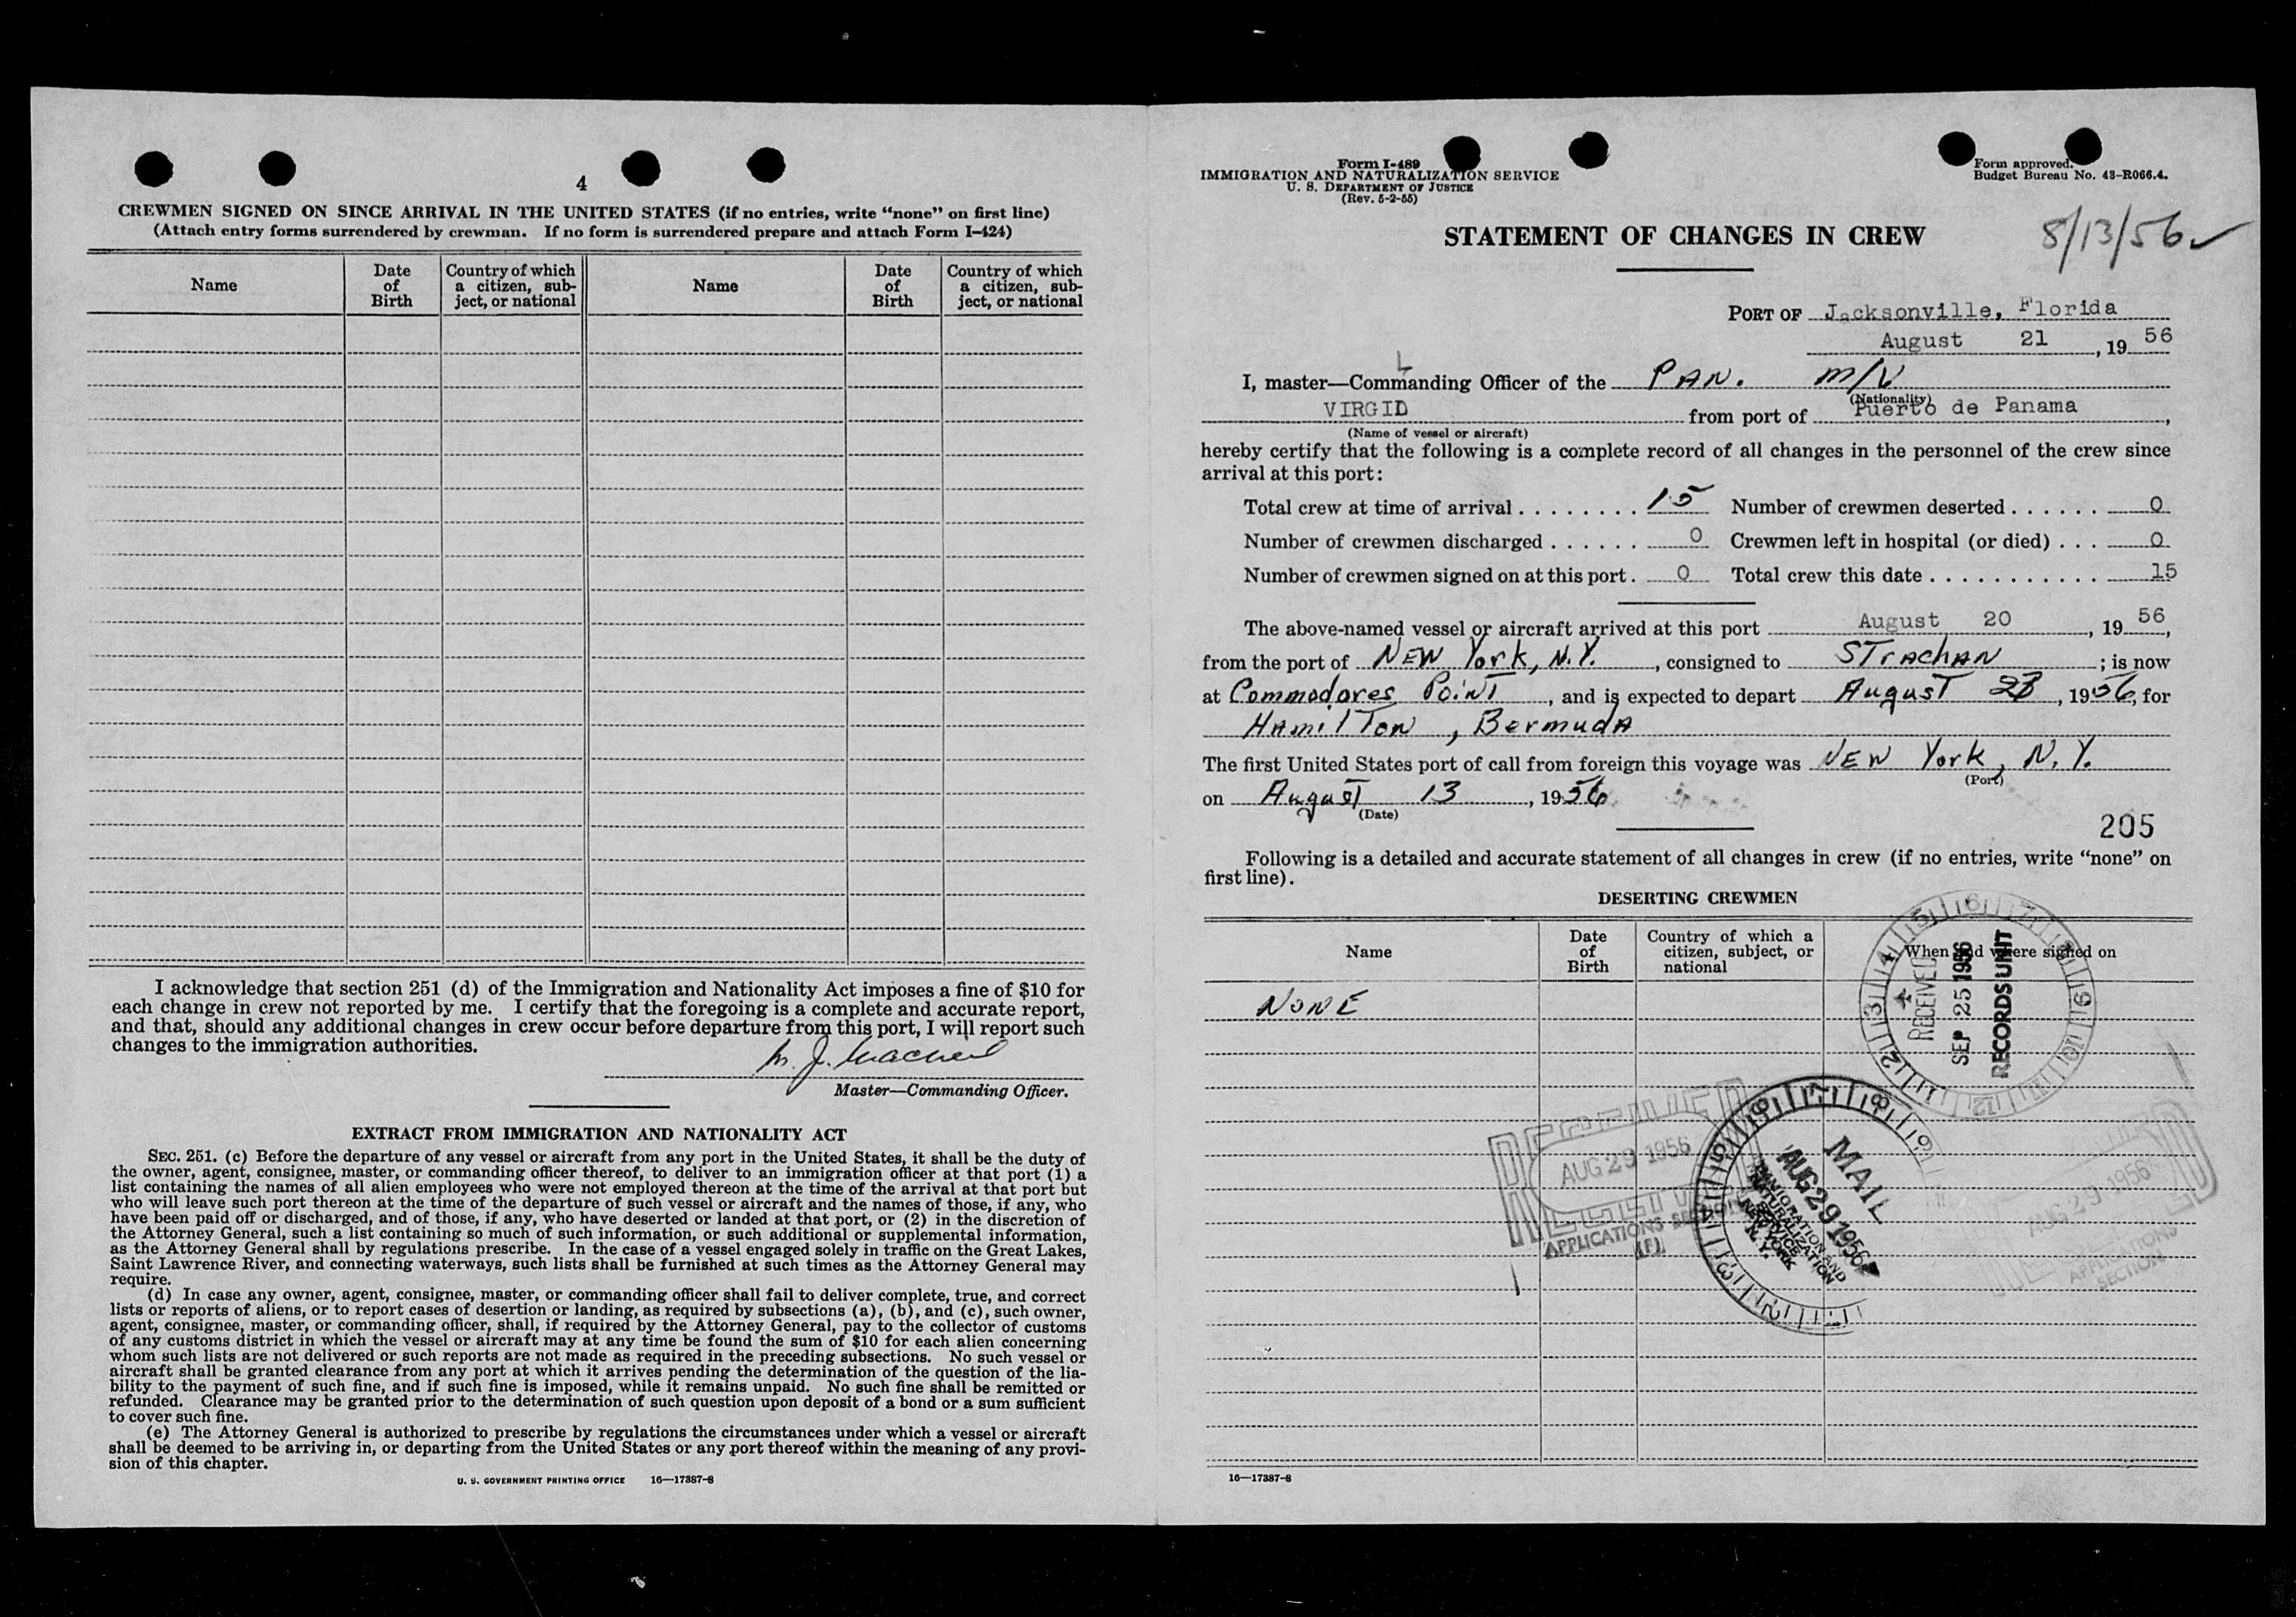 4
CREWMEN SIGNED ON SINCE ARRIVAL IN THE UNITED STATES (if no entries, write “none” on first line)
(Attach entry forms surrendered by crewman. If no form is surrendered prepare and attach Form I-424)
Name
Date of Birth
Country of which a citizen, subject, or national
Name
Date of Birth
Country of which a citizen, subject, or national
I acknowledge that section 251 (d) of the Immigration and Nationality Act imposes a fine of $10 for
each change in crew not reported by me. I certify that the foregoing is a complete and accurate report,
and that, should any additional changes in crew occur before departure from this port, I will report such
changes to the immigration authorities.
Master—Commanding Officer.
EXTRACT FROM IMMIGRATION AND NATIONALITY ACT
SEC. 251. (c) Before the departure of any vessel or aircraft from any port in the United States, it shall be the duty of
the owner, agent, consignee, master, or commanding officer thereof, to deliver to an immigration officer at that port (1) a
list containing the names of all alien employees who were not employed thereon at the time of the arrival at that port but
who will leave such port thereon at the time of the departure of such vessel or aircraft and the names of those, if any, who
have been paid off or discharged, and of those, if any, who have deserted or landed at that port, or (2) in the discretion of
the Attorney General, such a list containing so much of such information, or such additional or supplemental information,
as the Attorney General shall by regulations prescribe. In the case of a vessel engaged solely in traffic on the Great Lakes,
Saint Lawrence River, and connecting waterways, such lists shall be furnished at such times as the Attorney General may
require.
(d) In case any owner, agent, consignee, master, or commanding officer shall fail to deliver complete, true, and correct
lists or reports of aliens, or to report cases of desertion or landing, as required by subsections (a), (b), and (c), such owner,
agent, consignee, master, or commanding officer, shall, if required by the Attorney General, pay to the collector of customs
of any customs district in which the vessel or aircraft may at any time be found the sum of $10 for each alien concerning
whom such lists are not delivered or such reports are not made as required in the preceding subsections. No such vessel or
aircraft shall be granted clearance from any port at which it arrives pending the determination of the question of the lia-
bility to the payment of such fine, and if such fine is imposed, while it remains unpaid. No such fine shall be remitted or
refunded. Clearance may be granted prior to the determination of such question upon deposit of a bond or a sum sufficient
to cover such fine.
(e) The Attorney General is authorized to prescribe by regulations the circumstances under which a vessel or aircraft
shall be deemed to be arriving in, or departing from the United States or any port thereof within the meaning of any provi-
sion of this chapter.
U. S. GOVERNMENT PRINTING OFFICE 16—17387-8
Form I-489
IMMIGRATION AND NATURALIZATION SERVICE
U. S. DEPARTMENT OF JUSTICE
(Rev. 5-2-55)
Form approved.
Budget Bureau No. 43-R066.4.
STATEMENT OF CHANGES IN CREW
8/13/56
PORT OF Jacksonville, Florida
August 21, 1956
I, master—Commanding Officer of the PAN. M/V
(Nationality)
VIRGID from port of Puerto de Panama,
(Name of vessel or aircraft)
hereby certify that the following is a complete record of all changes in the personnel of the crew since
arrival at this port:
Total crew at time of arrival . . . . . . . . 15 Number of crewmen deserted . . . . . . 0
Number of crewmen discharged . . . . . . 0 Crewmen left in hospital (or died) . . . 0
Number of crewmen signed on at this port . 0 Total crew this date . . . . . . . . . . . 15
The above-named vessel or aircraft arrived at this port August 20, 1956,
from the port of NEW York, N.Y., consigned to STrachAN; is now
at Commodores Point, and is expected to depart August 23, 1956, for
Hamilton, Bermuda
The first United States port of call from foreign this voyage was NEW York, N.Y.
(Port)
on August 13, 1956
(Date)
205
Following is a detailed and accurate statement of all changes in crew (if no entries, write “none” on
first line).
DESERTING CREWMEN
Name
Date of Birth
Country of which a citizen, subject, or national
When and where signed on
NONE
RECEIVED
SEP 25 1956
RECORDS UNIT
RECEIVED
AUG 29 1956
APPLICATIONS SECTION
(F)
MAIL
AUG 29 1956
IMMIGRATION AND
NATURALIZATION
SERVICE
NEW YORK
N. Y.
AUG 29 1956
APPLICATIONS
SECTION
16—17387-8